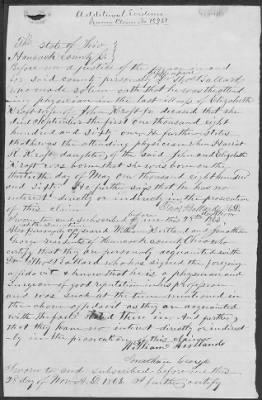 Additional Evidence
The State of Ohio }
Hancock County ss }
Before me a Justice of the Peace in and
for said county personally
who made oath that he was the attend
ing physician in the last illness of Elizabeth
Kraft wife of John Kraft deceased that she
died September the first one thousand eight
hundred and sixty one. He further states
that he was the attending physician when Harriet
Kraft daughter of the said John and Elizabeth
Kraft was born that she was born on the
thirtieth day of May one thousand eight hundred
and sixty. He further says that he has no
interest directly or indirectly in the prosecution
of this claim
Sworn to and subscribed before me this 28th
appeared William Hartland and Jonathan
George residents of Hancock County Ohio who
certify that they are personally acquainted with
Ballard who has signed the foregoing
affidavit & know that he is a physician and
Surgeon of good reputation in his profession
and was such at the time mentioned in
the above affidavit as they are acquainted
with the facts therein. And further
that they have no interest directly or indirect
ly in the prosecution of this claim
William Hartland
Jonathan George
Sworn to and subscribed before me this
28 day of Nov A.D. 1863. I further certify